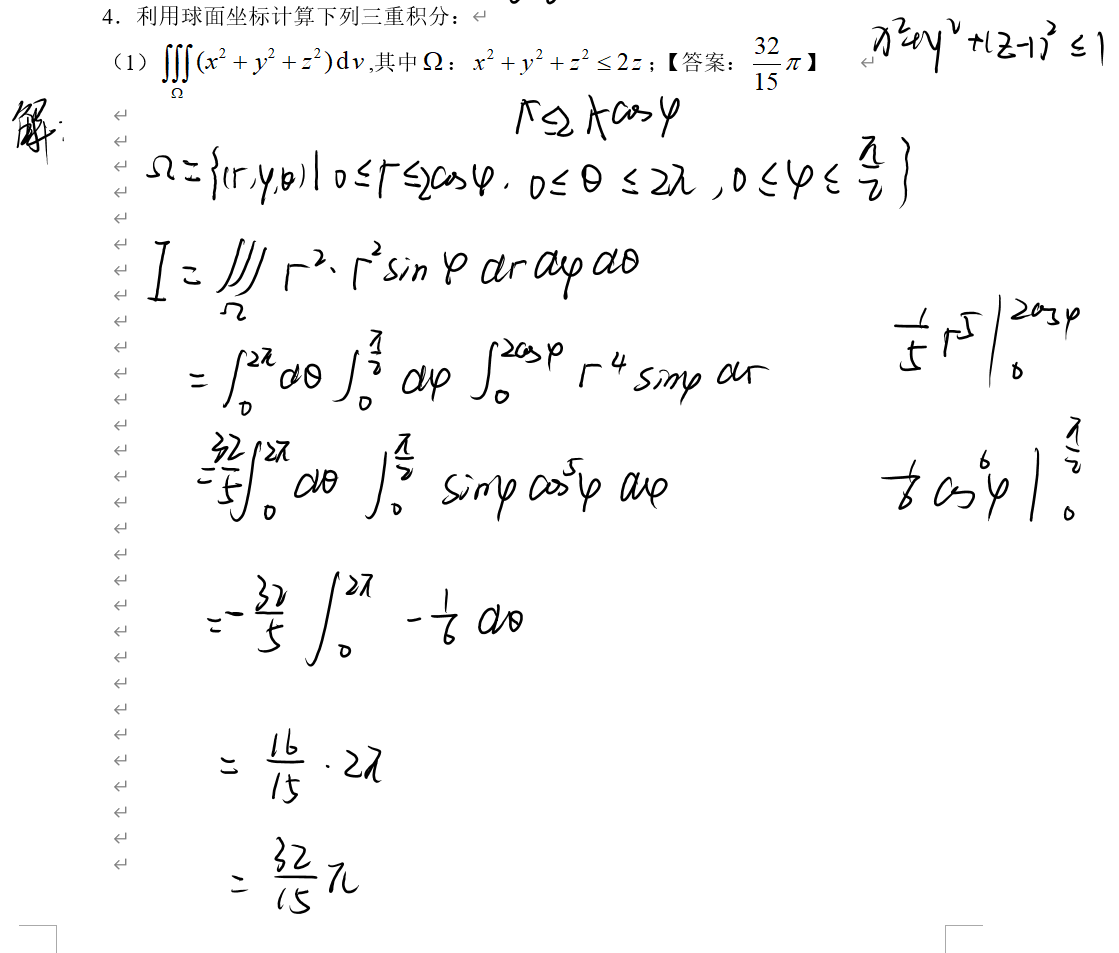 4．利用球面坐标计算下列三重积分：
（1）∭_Ω (x²+y²+z²)dv,其中Ω：x²+y²+z²≤2z；【答案：32/15 π】
x²+y²+(z-1)²≤1
解：
Ω={(r,φ,θ)|0≤r≤2cosφ, 0≤θ≤2π, 0≤φ≤π/2}
I=∭_Ω r²·r²sinφ dr dφ dθ
=∫_0^{2π} dθ ∫_0^{π/2} dφ ∫_0^{2cosφ} r⁴ sinφ dr
1/5 r⁵|_0^{2cosφ}
=32/5 ∫_0^{2π} dθ ∫_0^{π/2} sinφ cos⁵φ dφ
1/6 cos⁶φ|_0^{π/2}
=-32/5 ∫_0^{2π} -1/6 dθ
=16/15·2π
=32/15 π